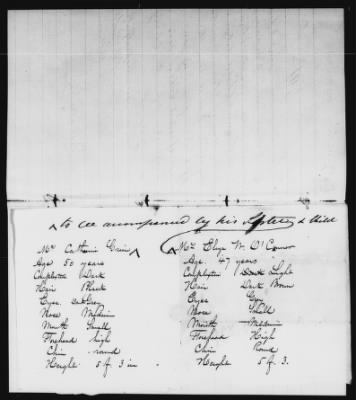 ^ to be accompanied by his Sister & Child
Mrs Catherine ^
Age 50 years
Complexion Dark
Hair Black
Eyes
Nose Medium
Mouth Small
Forehead high
Chin round
Height 5 f 3 in
Mrs Eliza W. O'Connor
Age 47 years
Complexion Dark Light
Hair Dark Brown
Eyes Grey
Nose Small
Mouth Medium
Forehead High
Chin Round
Height 5 f 3.